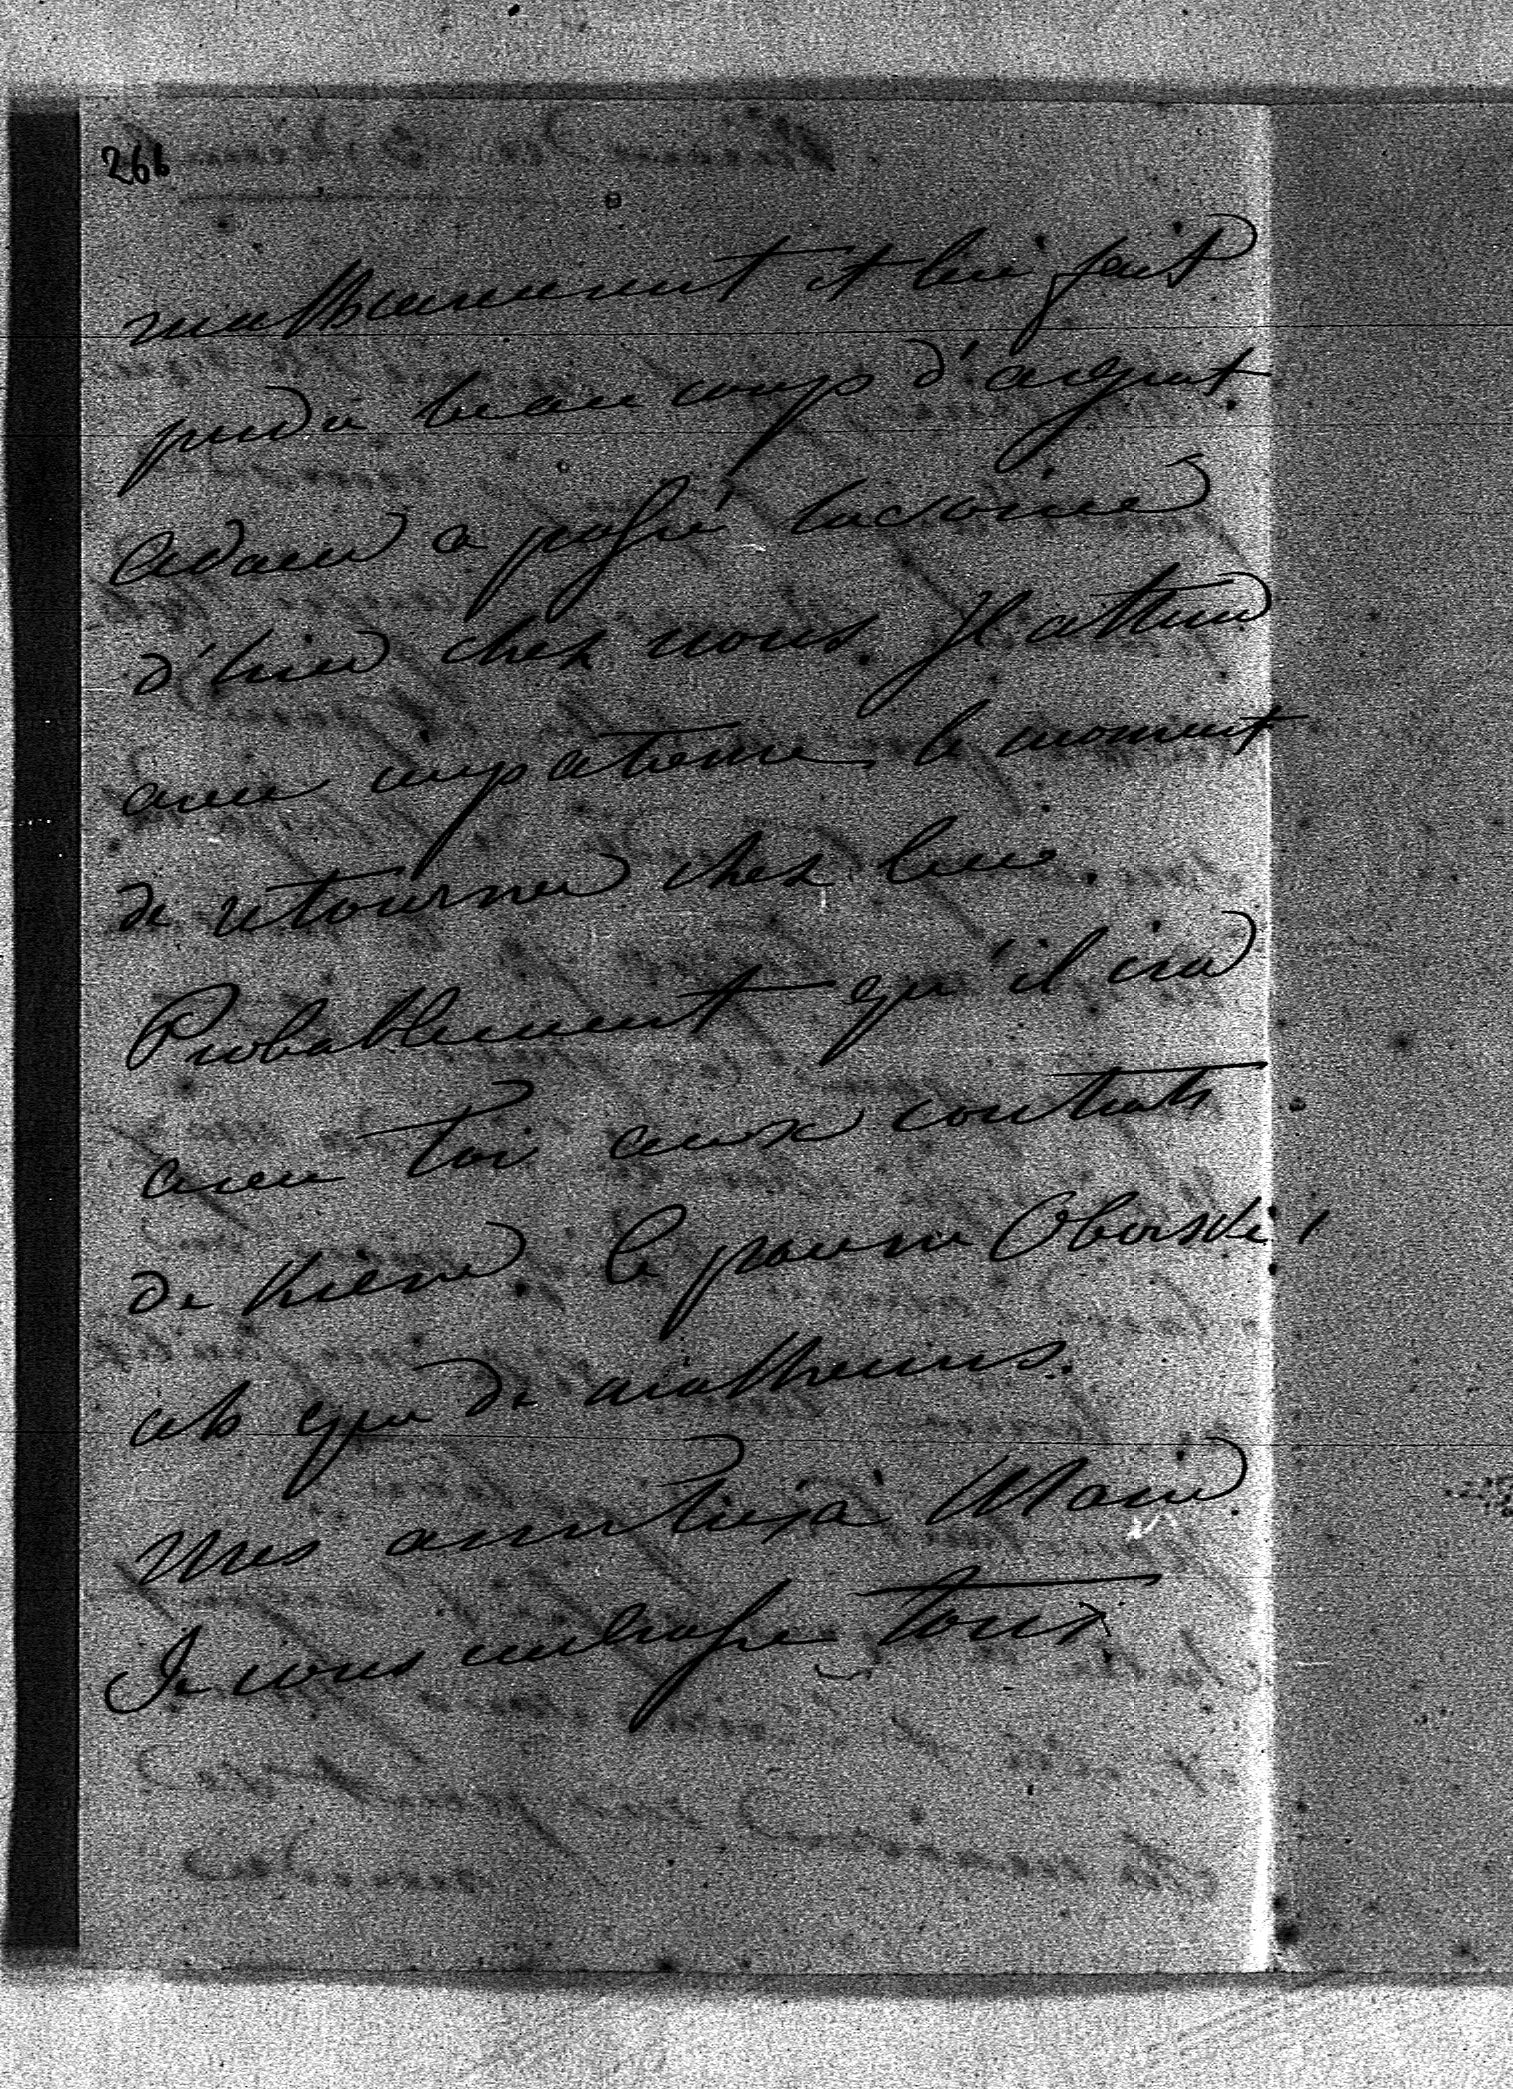 266
malheureusement et lui fait
perdre beaucoup d'argent.
Adam a passé la soirée
d'hier chez nous. Il attend
avec impatience le moment
de retourner chez lui.
Probablement qu'il ira
avec toi aux contrats
de Kiève. Le pauvre Oberski,
que de malheurs.
Mes amitiés à Marie.
Je vous embrasse tous